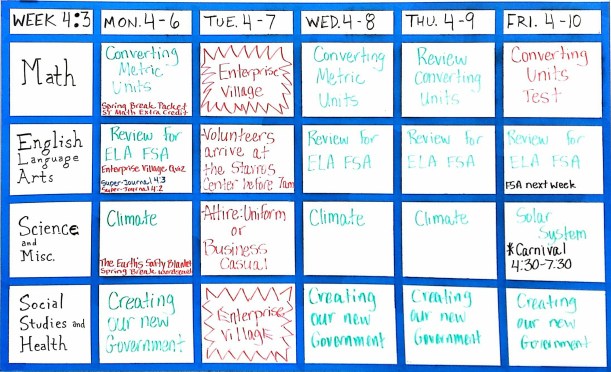 WEEK 4:3
MON. 4-6
TUE. 4-7
WED. 4-8
THU. 4-9
FRI. 4-10
Math
Converting
Metric
Units
Spring Break Packet
SY Math Extra Credit
Enterprise
Village
Converting
Metric
Units
Review
Converting
Units
Converting
Units
Test
English
Language
Arts
Review for
ELA FSA
Enterprise Village Quiz
Super-Journal 4:3
Super-Journal 4:2
Volunteers
arrive at
the Stavros
Center before 7am
Review for
ELA FSA
Review for
ELA FSA
Review for
ELA FSA
FSA next week
Science
and
Misc.
Climate
The Earth's Salty Blanket
Spring Break
Attire: Uniform
or
Business
Casual
Climate
Climate
Solar
System
*Carnival
4:30-7:30
Social
Studies and
Health
Creating
our new
Government
Enterprise
Village
Creating
our new
Government
Creating
our new
Government
Creating
our new
Government